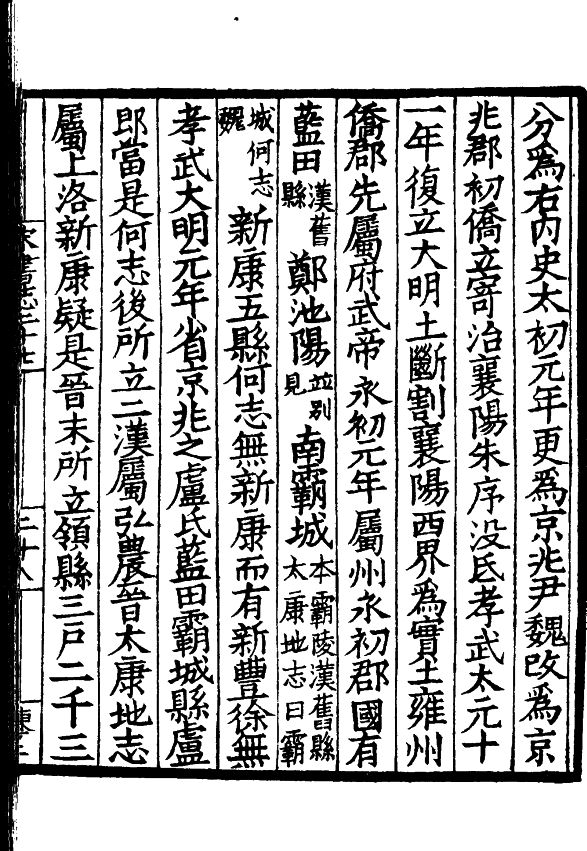 分爲右内史太初元年更爲京兆尹魏改爲京
兆郡初僑立寄治襄陽朱序没氐孝武太元十
一年復立大明土斷割襄陽西界爲實土雍州
僑郡先屬府武帝永初元年屬州永初郡國有
藍田漢舊縣鄭池陽並別見南霸城本霸陵漢舊縣太康地志曰霸
城何志魏新康五縣何志無新康而有新豐徐無
孝武大明元年省京兆之盧氏藍田霸城縣盧
郎當是何志後所立二漢屬弘農晉太康地志
屬上洛新康疑是晉末所立領縣三戸二千三